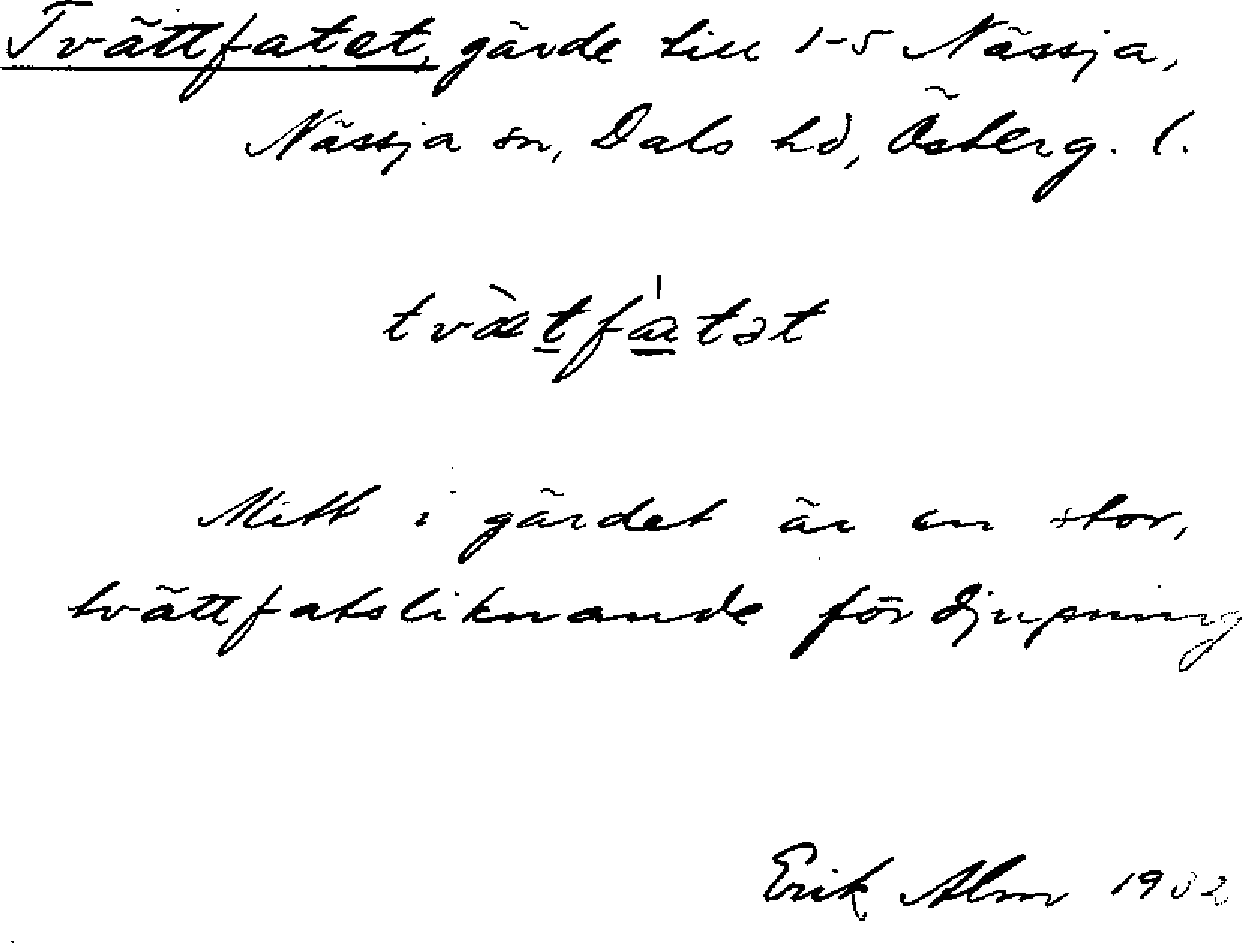 Tvättfatet, gärde till 1-5 Nässja,
Nässja sn, Dals hd, Österg. l.
tvæ̀tfátət
Mitt i gärdet är en stor,
tvättfatsliknande fördjupning
Erik Alm 1932